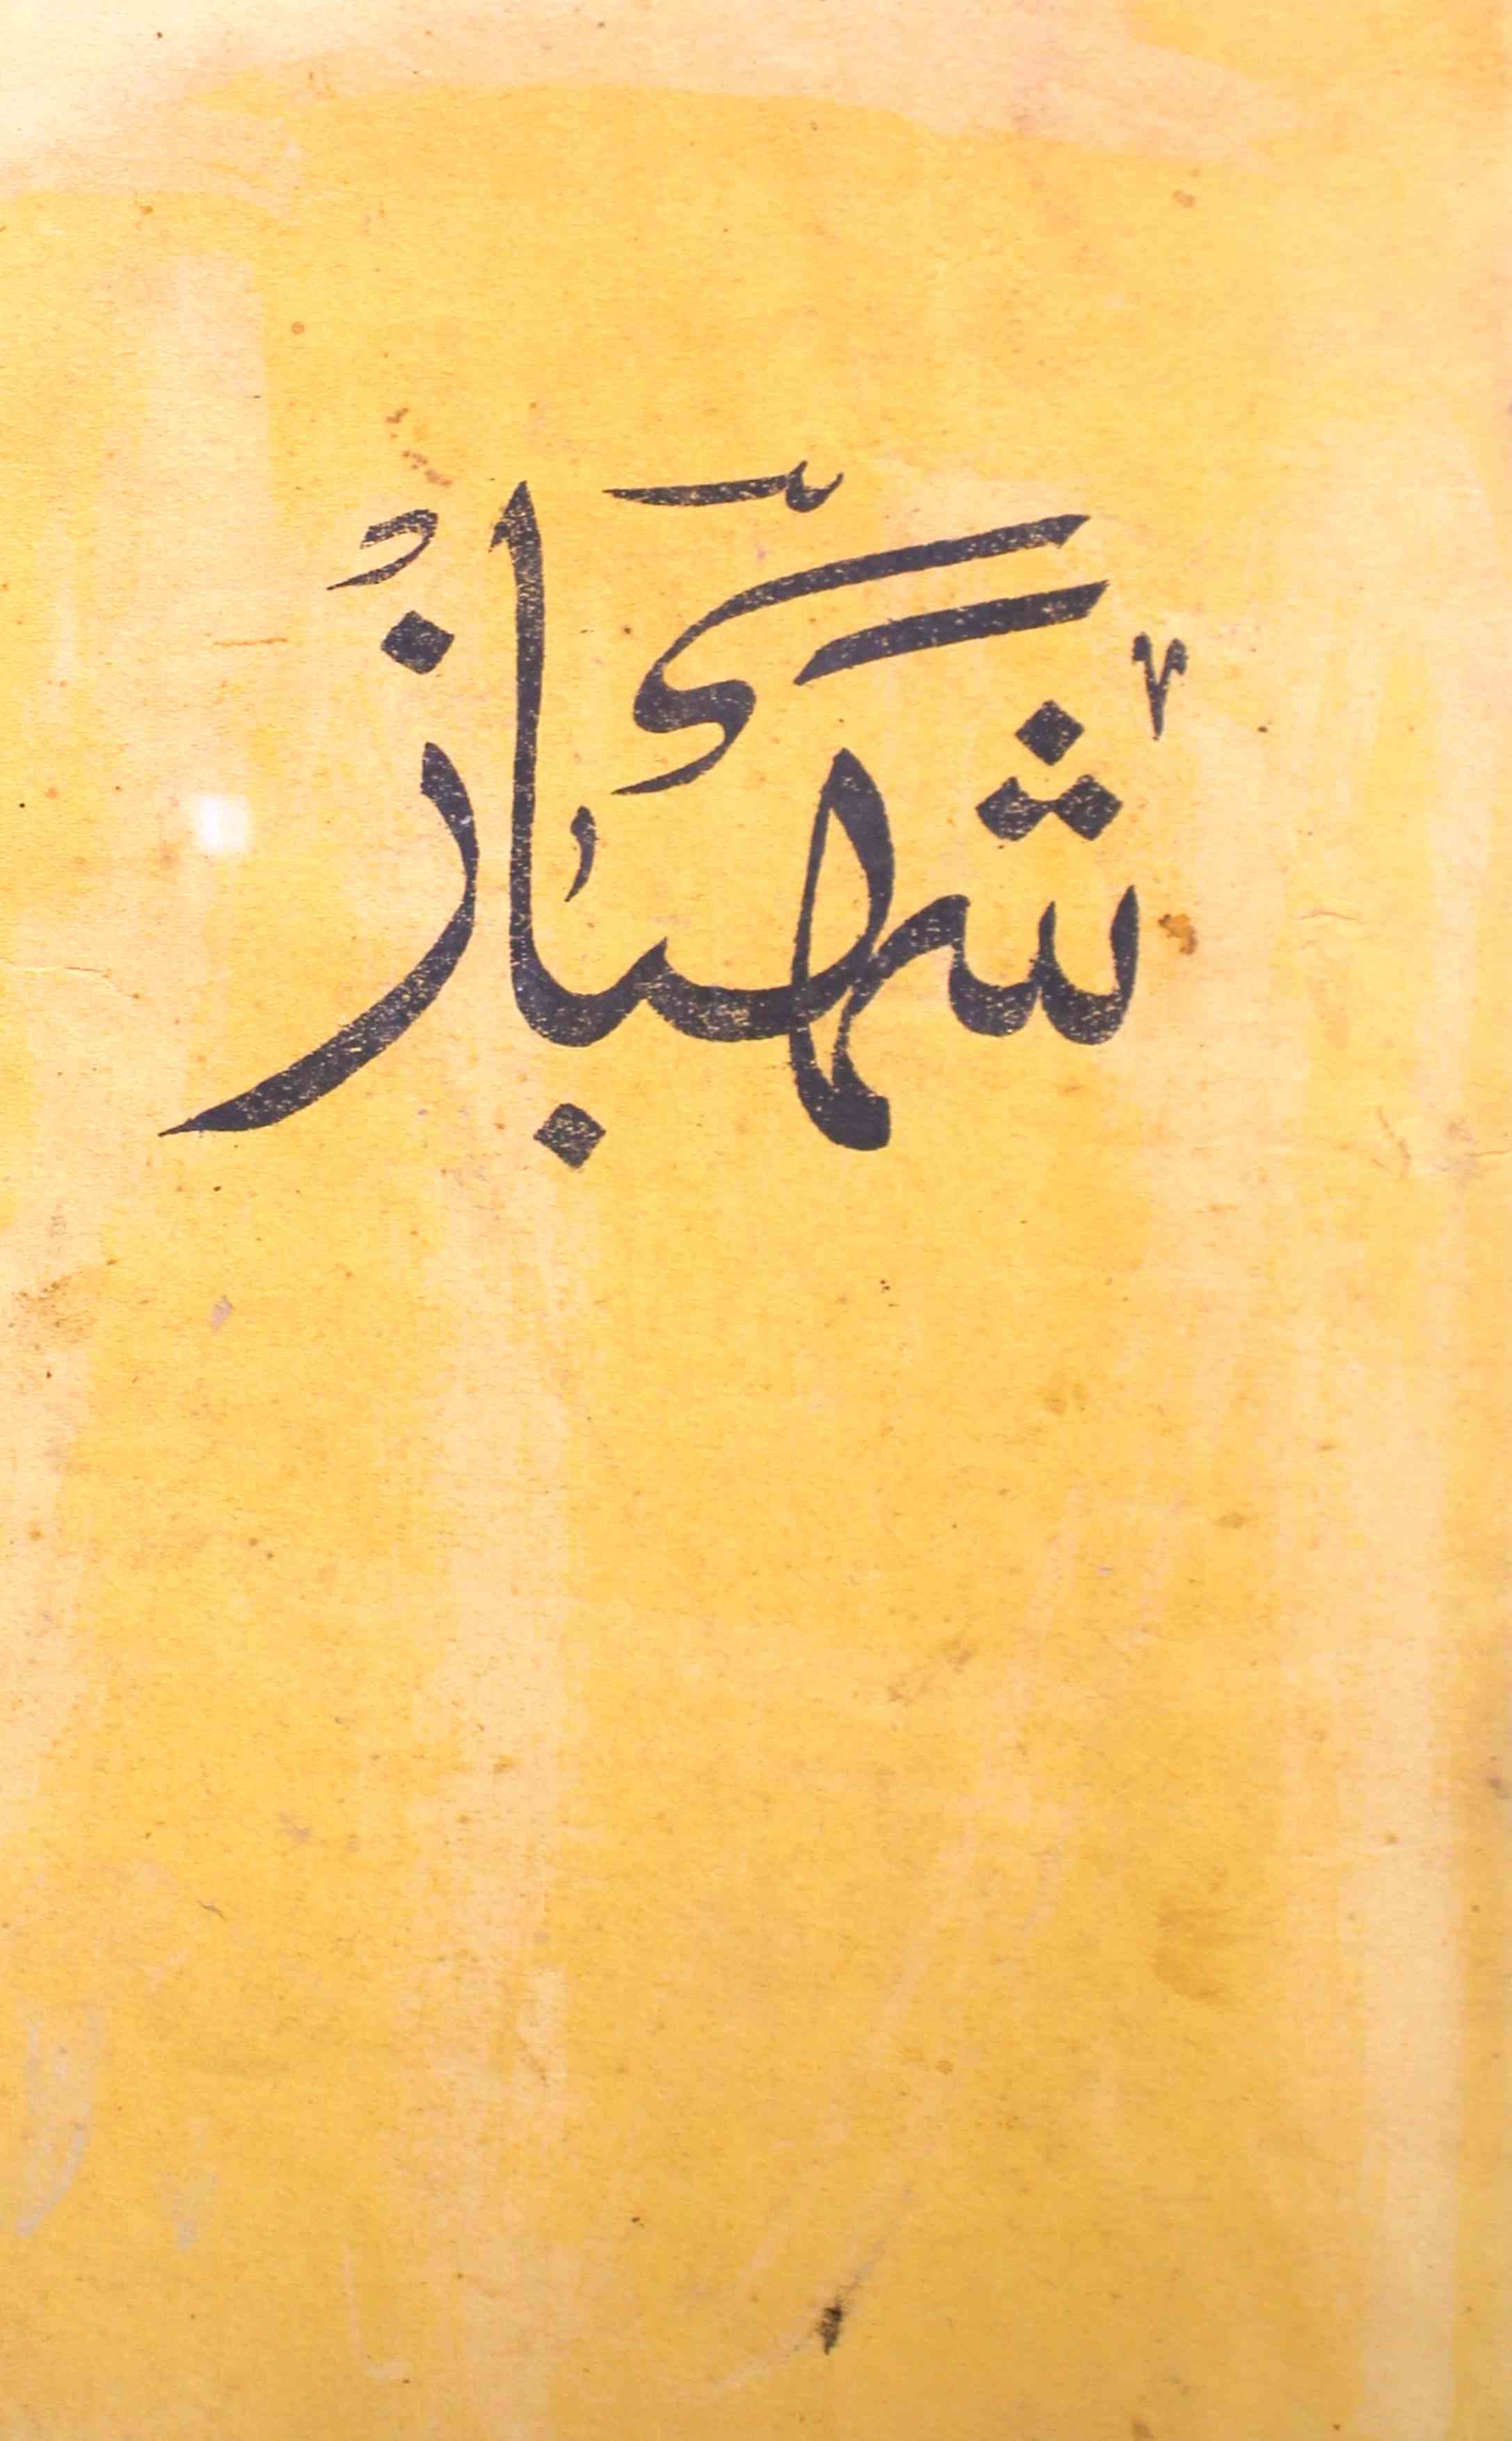 شہباز